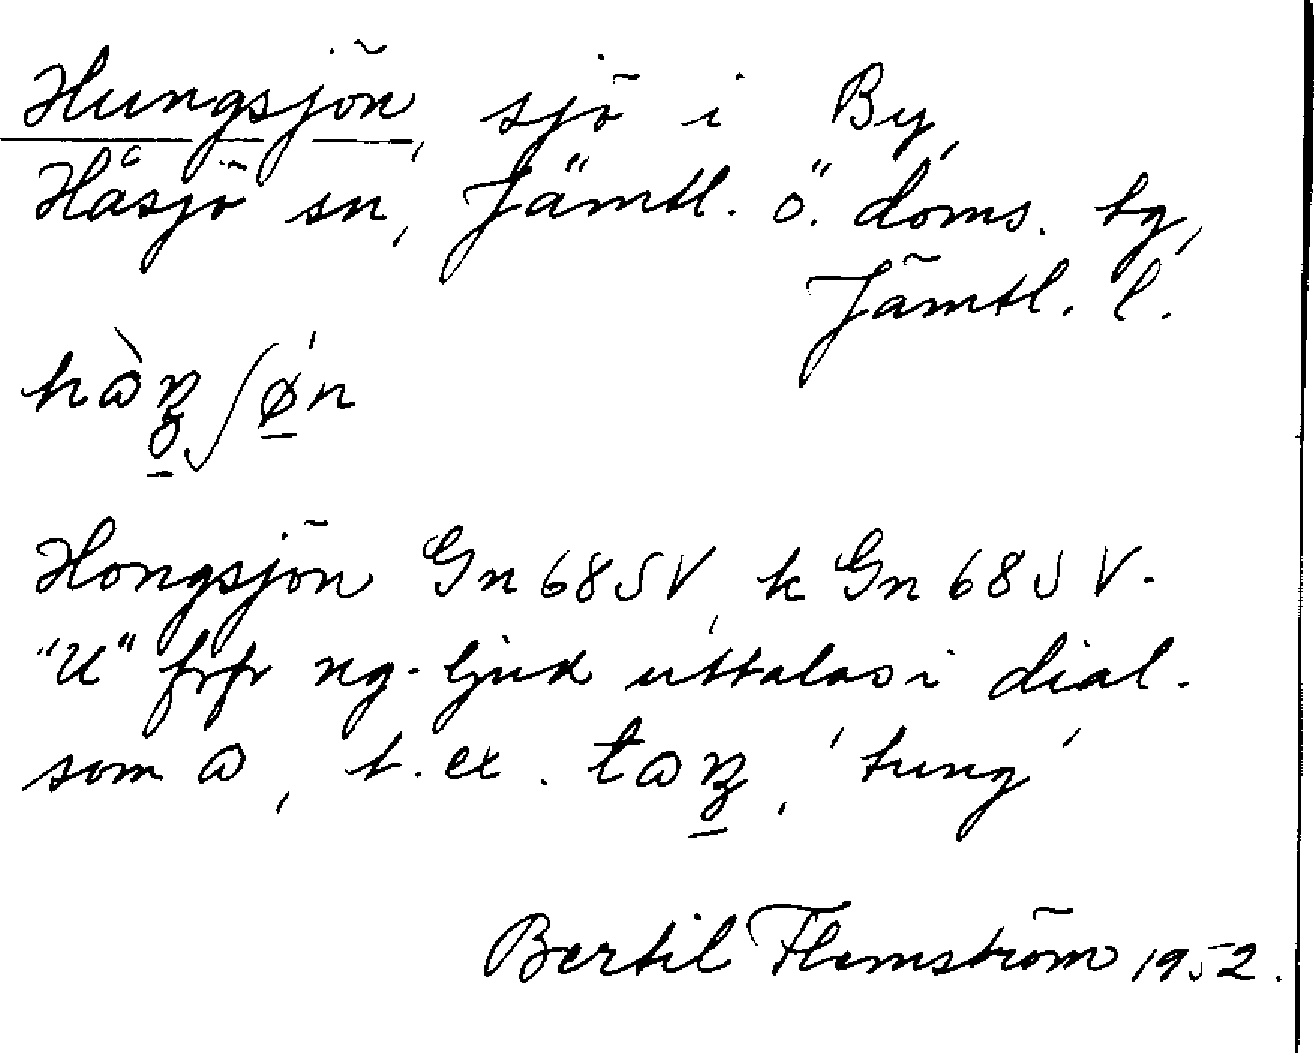 Hungsjön, sjö i By,
Håsjö sn, Jämtl. ö. doms. tg,
Jämtl. l.
Hongsjön Gn 68 SV, k Gn 68 SV.
"U" frfr ng-ljud uttalas i dial.
som a, t.ex. 'tung'
Bertil Flemström 1952.